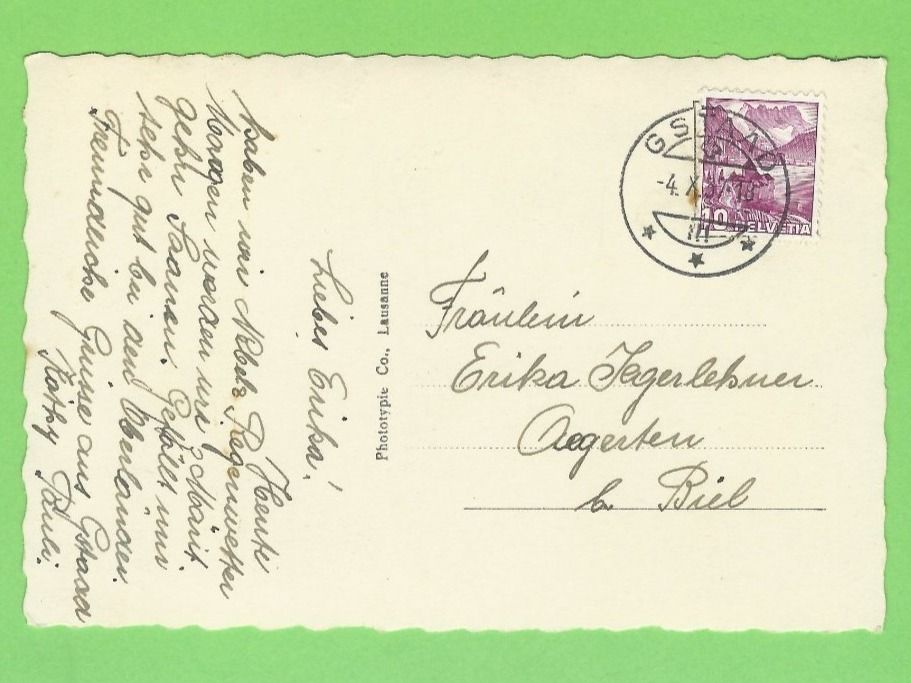 Liebes Erika!
Heute
haben wir Nebel, Regenwetter
Morgen werden wir z'Märit
gehn Saanen. Gefällt mir
sehr gut bei den Oberländer.
Freundliche Grüsse aus Gstaad
Käthy Pauli.
Phototypie Co., Lausanne
GSTAAD
-4.X.37.18
10 HELVETIA
Fräulein
Erika Jegerlehner
Aegerten
b. Biel